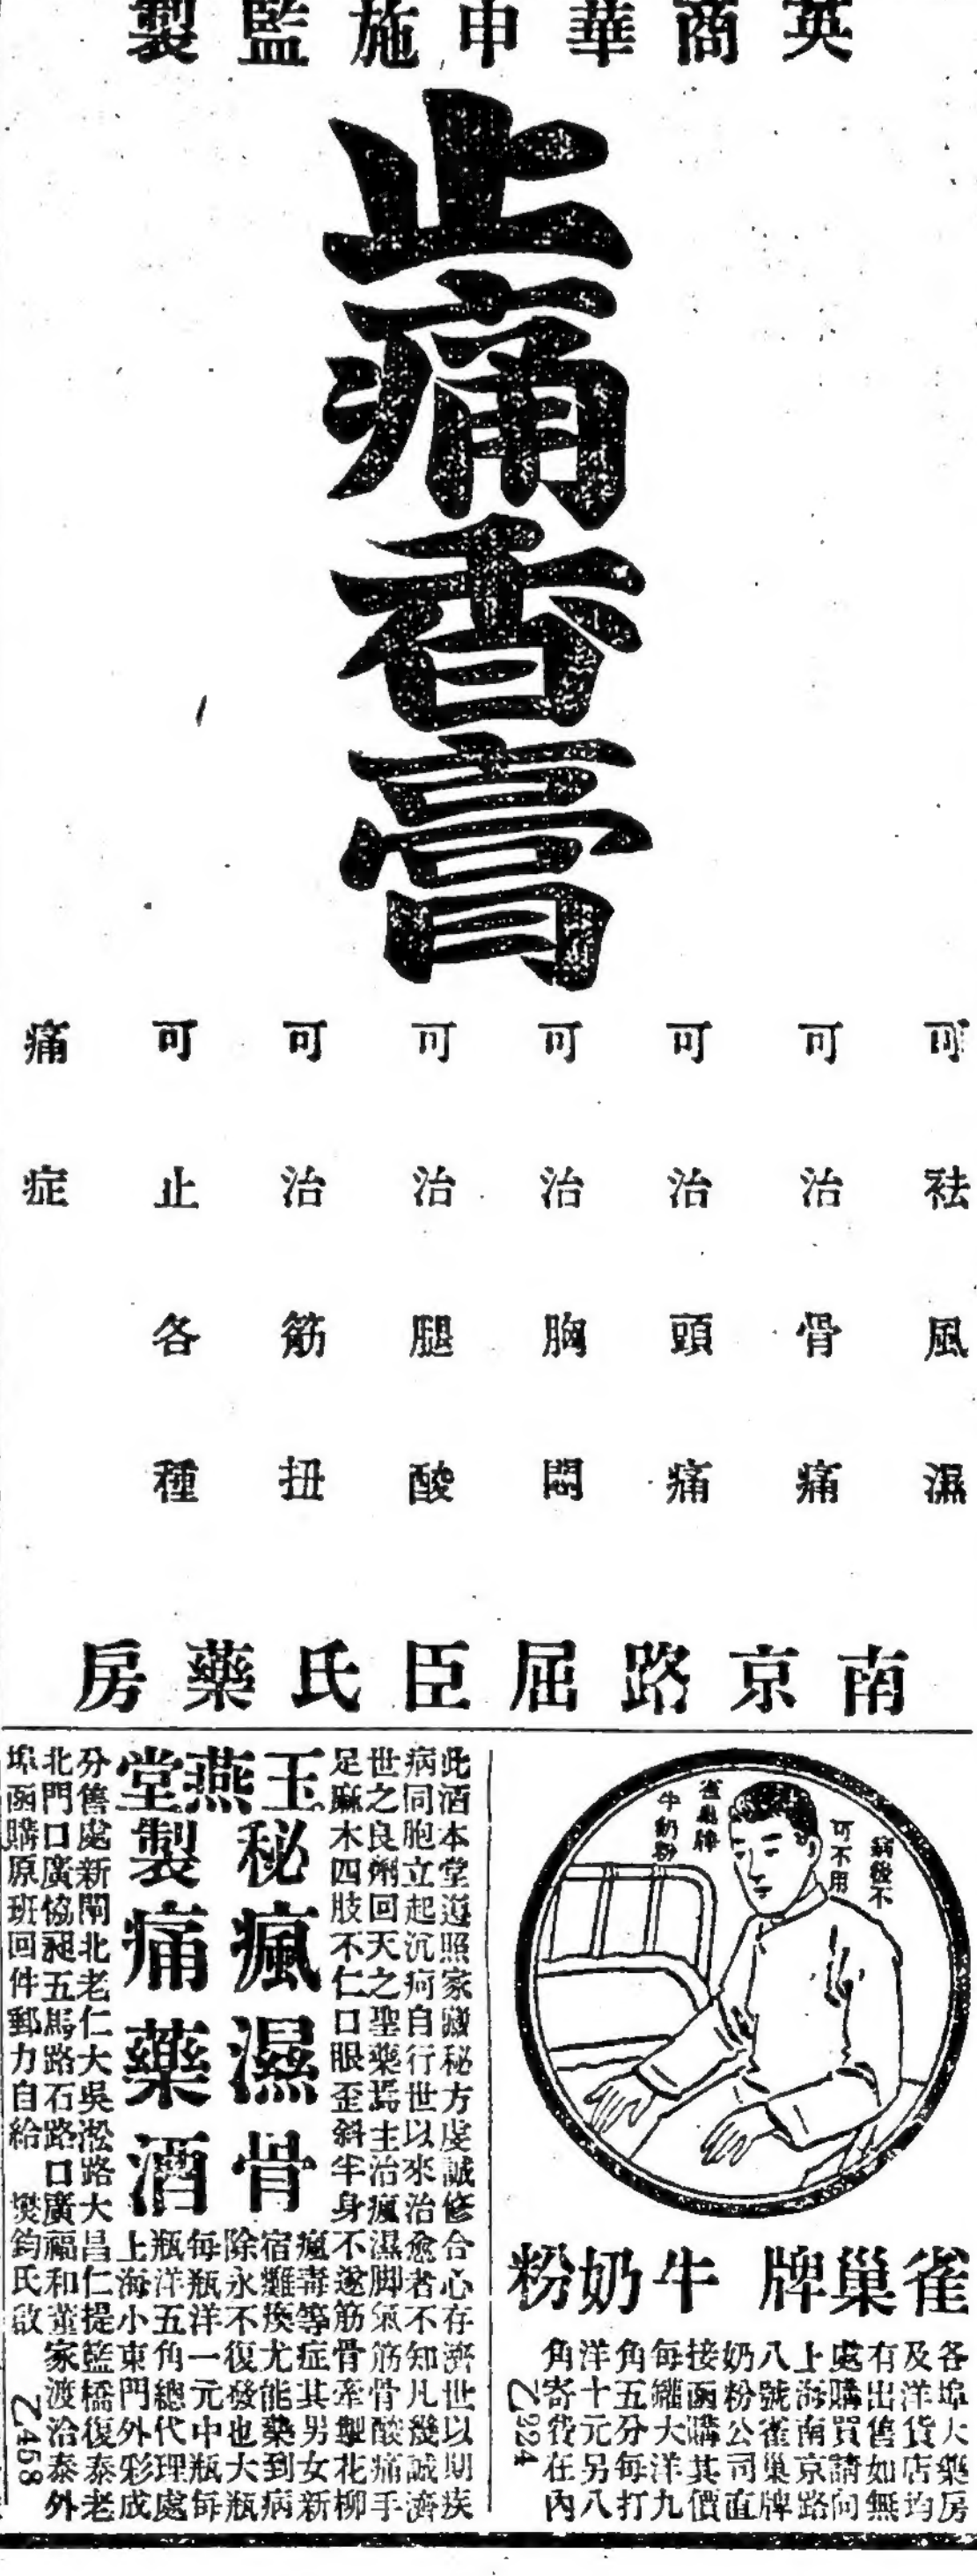 英商華申施監製
止痛香膏
可祛風濕
可治骨痛
可治頭痛
可治胸悶
可治腿酸
可治筋扭
可止各種
痛症
南京路屈臣氏藥房
病後不
可不用
雀巢牌
牛奶粉
雀巢牌牛奶粉
各埠大藥房
及洋貨店均
有出售如無
處購買請向
上海南京路
八號雀巢牌
奶粉公司直
接函購其價
每罐大洋九
角五分每打
洋十元另八
角寄費在內
Z924
此酒本堂遵照家藏秘方虔誠修合心存濟世以期疾
病同胞立起沉疴自行世以來治愈者不知凡幾誠濟
世之良劑回天之聖藥焉主治瘋濕脚氣筋骨酸痛手
足麻木四肢不仁口眼歪斜半身不遂筋骨牽掣花柳
瘋毒等症其男女新
宿難瘓尤能藥到病
除永不復發也大瓶
每瓶洋一元中瓶每
瓶洋五角總代理處
上海小東門外彩成
玉燕堂
秘製
瘋濕骨痛藥酒
分售處新閘北老仁大吳淞路大昌仁提籃橋復泰老
北門口廣協昶五馬路石路口廣福和董家渡洽泰外
埠函購原班回件郵力自給 鈞氏啟
Z458